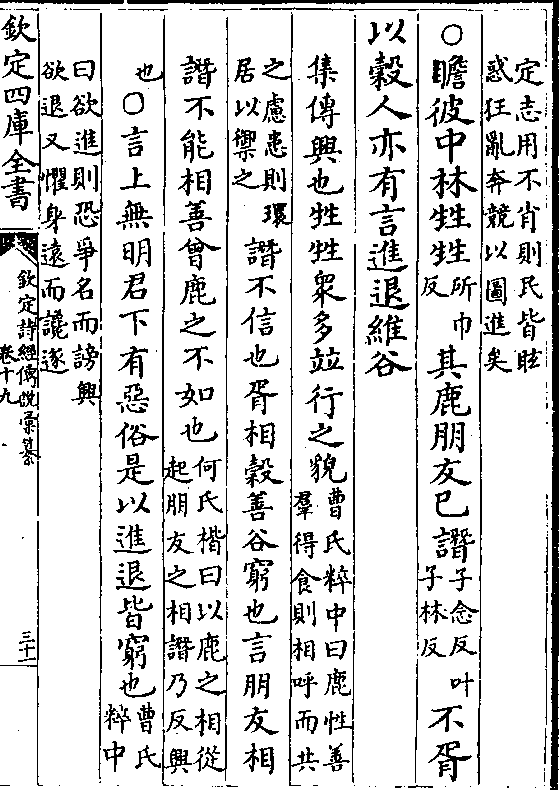 定志用不肖則民皆眩
惑狂亂奔競以圖進矣
○瞻彼中林甡甡所巾反其鹿朋友已譖子念反叶子林反不胥
以穀人亦有言進退維谷
集傳興也甡甡衆多並行之貌曹氏粹中曰鹿性善羣得食則相呼而共
之慮患則環居以禦之譖不信也胥相穀善谷窮也言朋友相
譖不能相善曾鹿之不如也何氏楷曰以鹿之相從起朋友之相譖乃反興
也○言上無明君下有惡俗是以進退皆窮也曹氏粹中
曰欲進則恐爭名而謗興
欲退又懼身遠而讒逐
欽定四庫全書
欽定詩經傳說彙纂
卷十九
三十一